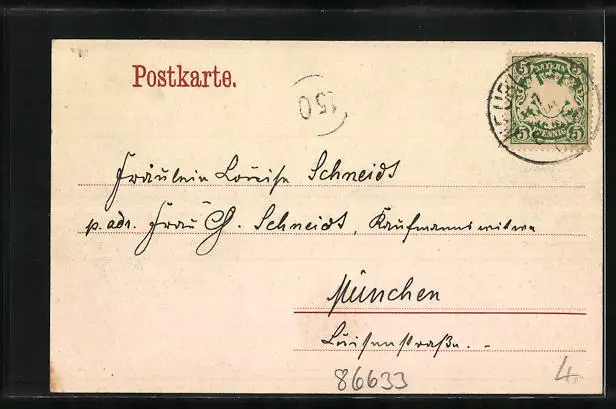 Postkarte.
150
5 BAYERN 5
5 PFENNIG 5
Fräulein Louise Schneidt
p. adr. Frau G. Schneidt, Kaufmannswitwe
München
Luisenstraße. -
86633
4.